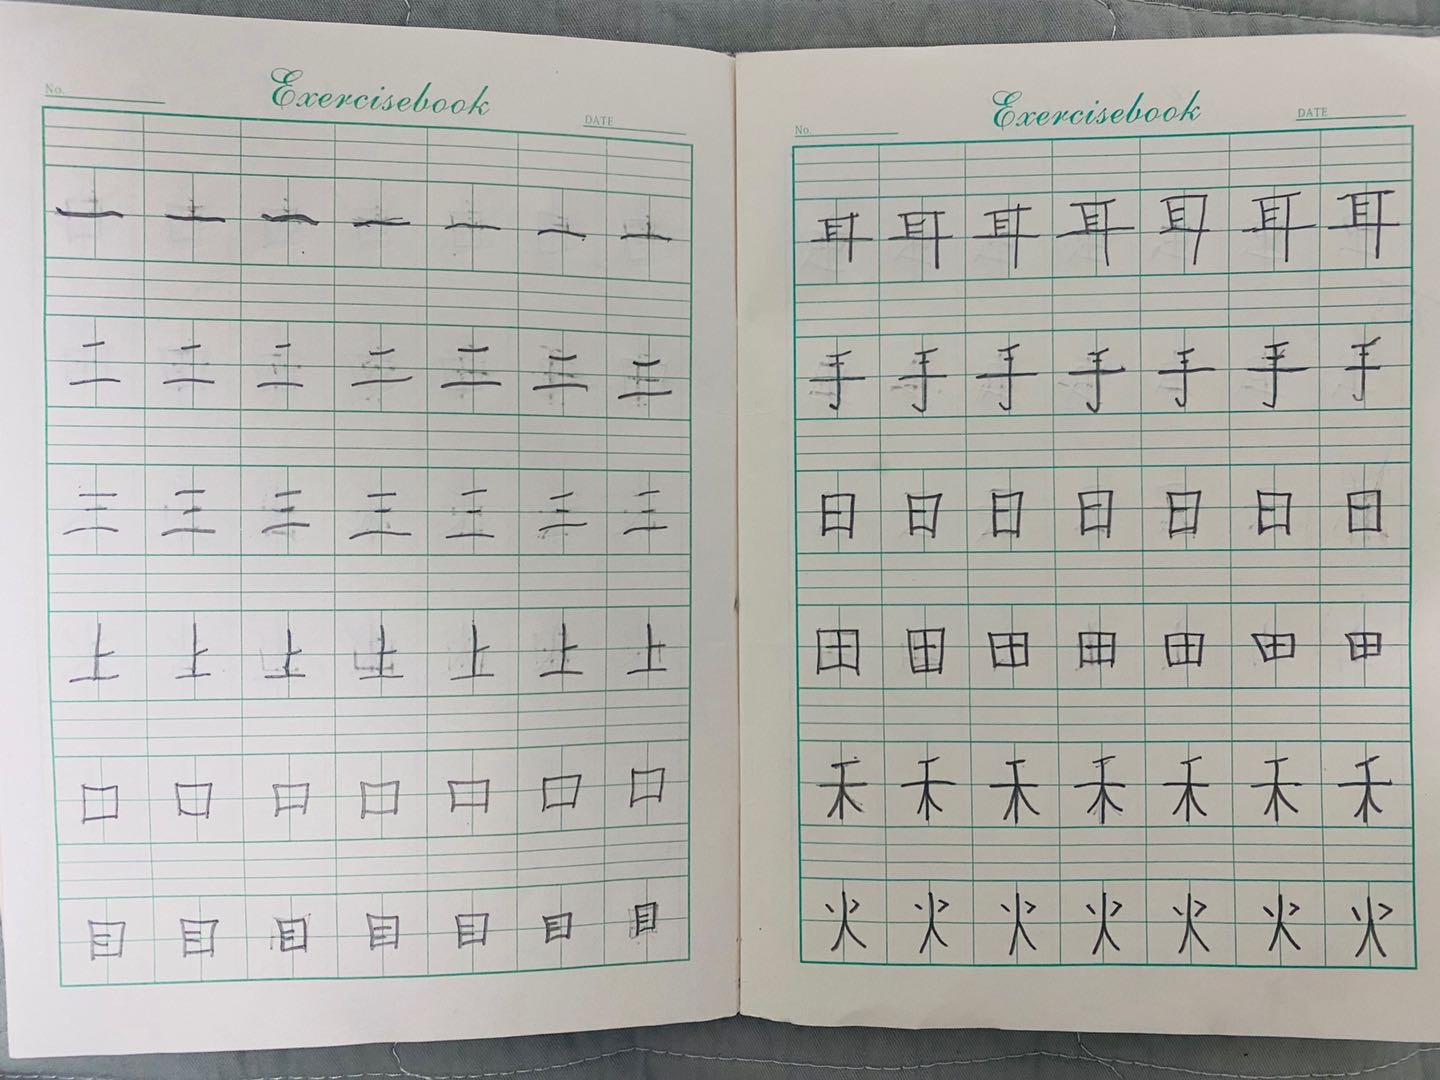 No. Exercisebook DATE
一 一 一 一 一 一 一
二 二 二 二 二 二 二
三 三 三 三 三 三 三
上 上 上 上 上 上 上
口 口 口 口 口 口 口
目 目 目 目 目 目 目
No. Exercisebook DATE
耳 耳 耳 耳 耳 耳 耳
手 手 手 手 手 手 手
日 日 日 日 日 日 日
田 田 田 田 田 田 田
禾 禾 禾 禾 禾 禾 禾
火 火 火 火 火 火 火